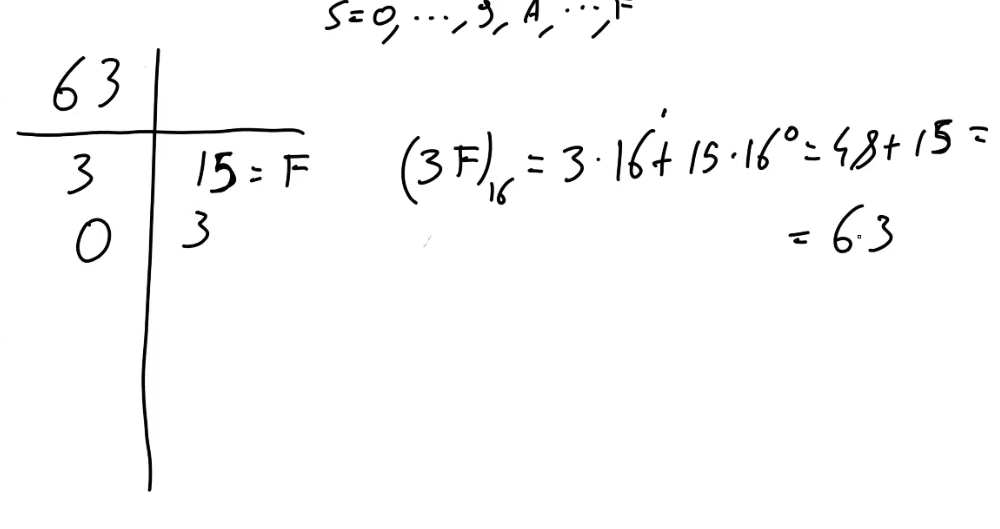 S=0, ..., 9, A, ..., F
63
3 15 = F
0 3
(3F)₁₆ = 3·16¹ + 15·16⁰ = 48 + 15 =
= 63